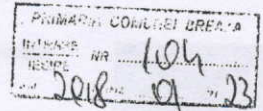 PRIMĂRIA COMUNEI BREAZA
INTRARE
IEȘIRE NR 104
2018 luna 01 zi 23